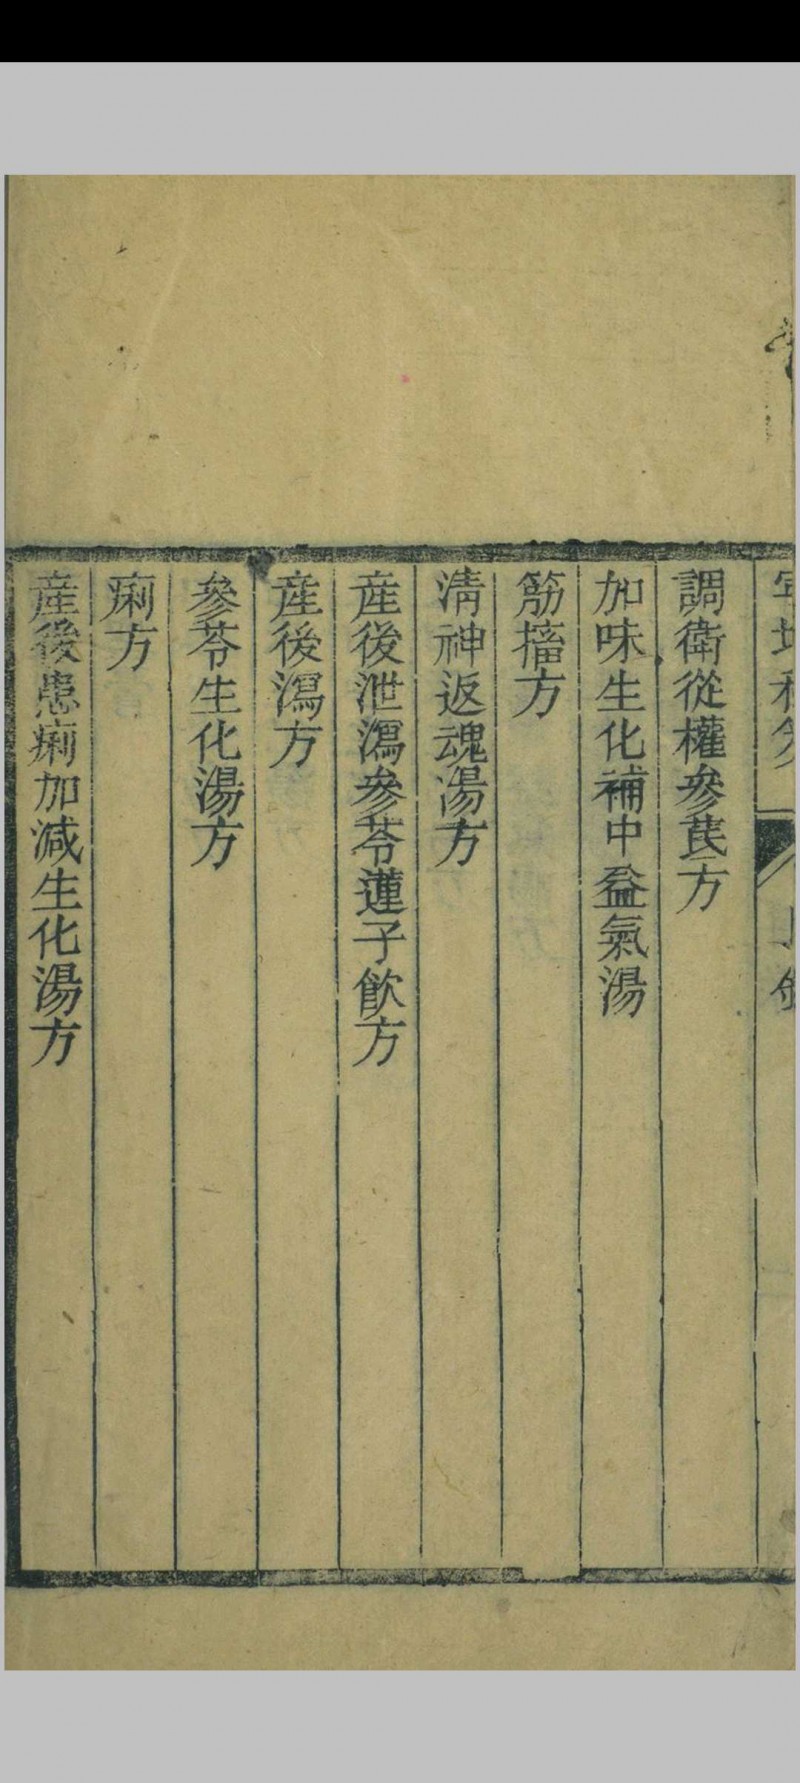 調衛從權參芪方
加味生化補中益氣湯
筋搐方
清神返魂湯方
産後泄瀉參苓蓮子飲方
産後瀉方
參苓生化湯方
痢方
産後患痢加减生化湯方